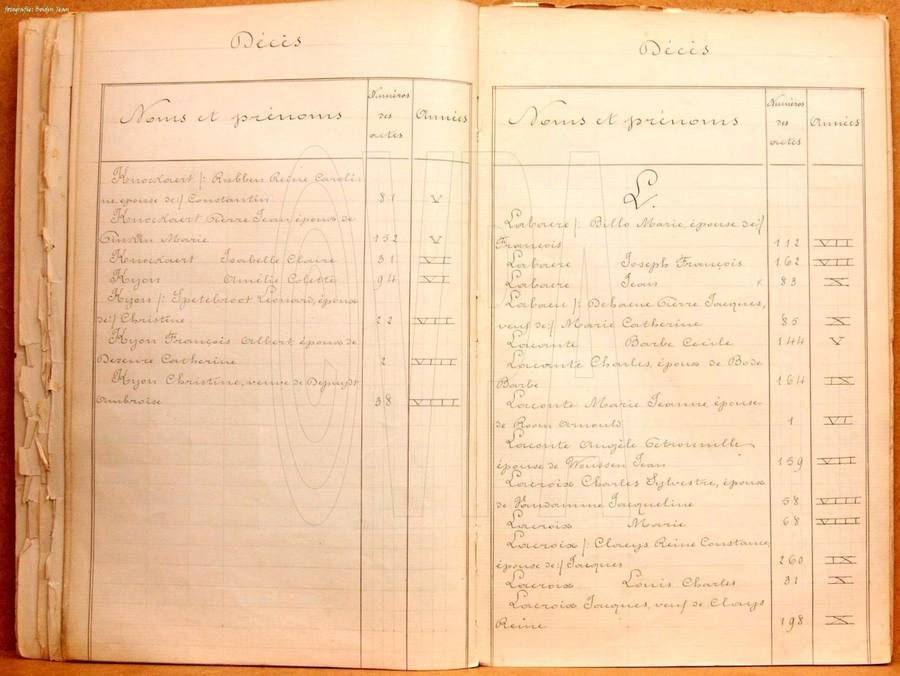 fotografie: Boidin Jean
Décès
Noms et prénoms
Numéros des actes
Années
Knockaert /: Rubben Reine Caroli-
ne, épouse de :/ Constantin 81 V
Knockaert Pierre Jean, époux de
Marie 152 V
Knockaert Isabelle Claire 31 VI
Kyon Amélie Colette 94 VI
Kyon /: Spetebroot Léonard, époux
de :/ Christine 22 VII
Kyon François Albert époux de
Deseure Catherine 2 VIII
Kyon Christine, veuve de Depuydt
Ambroise 38 VIII
Décès
Noms et prénoms
Numéros des actes
Années
L.
Labaere /: Billo Marie, épouse de :/
François 112 VII
Labaere Joseph François 162 VII
Labaere Jean 83 X
Labaeu /: Dehaene Pierre Jacques,
veuf de :/ Marie Catherine 85 X
Laconte Barbe Cecile 144 V
Laconte Charles, époux de Bode
Barbe 164 IX
Laconte Marie Jeanne, épouse
de Room Arnould 1 VI
Laconte Angèle Pétronnille
épouse de Woussen Jean 159 VII
Lacroix Charles Sylvestre, époux
de Vandamme Jacqueline 58 VIII
Lacroix Marie 68 VIII
Lacroix /: Claeys Reine Constance,
épouse de :/ Jacques 260 IX
Lacroix Louis Charles 31 X
Lacroix Jacques, veuf de Claeys
Reine 198 X